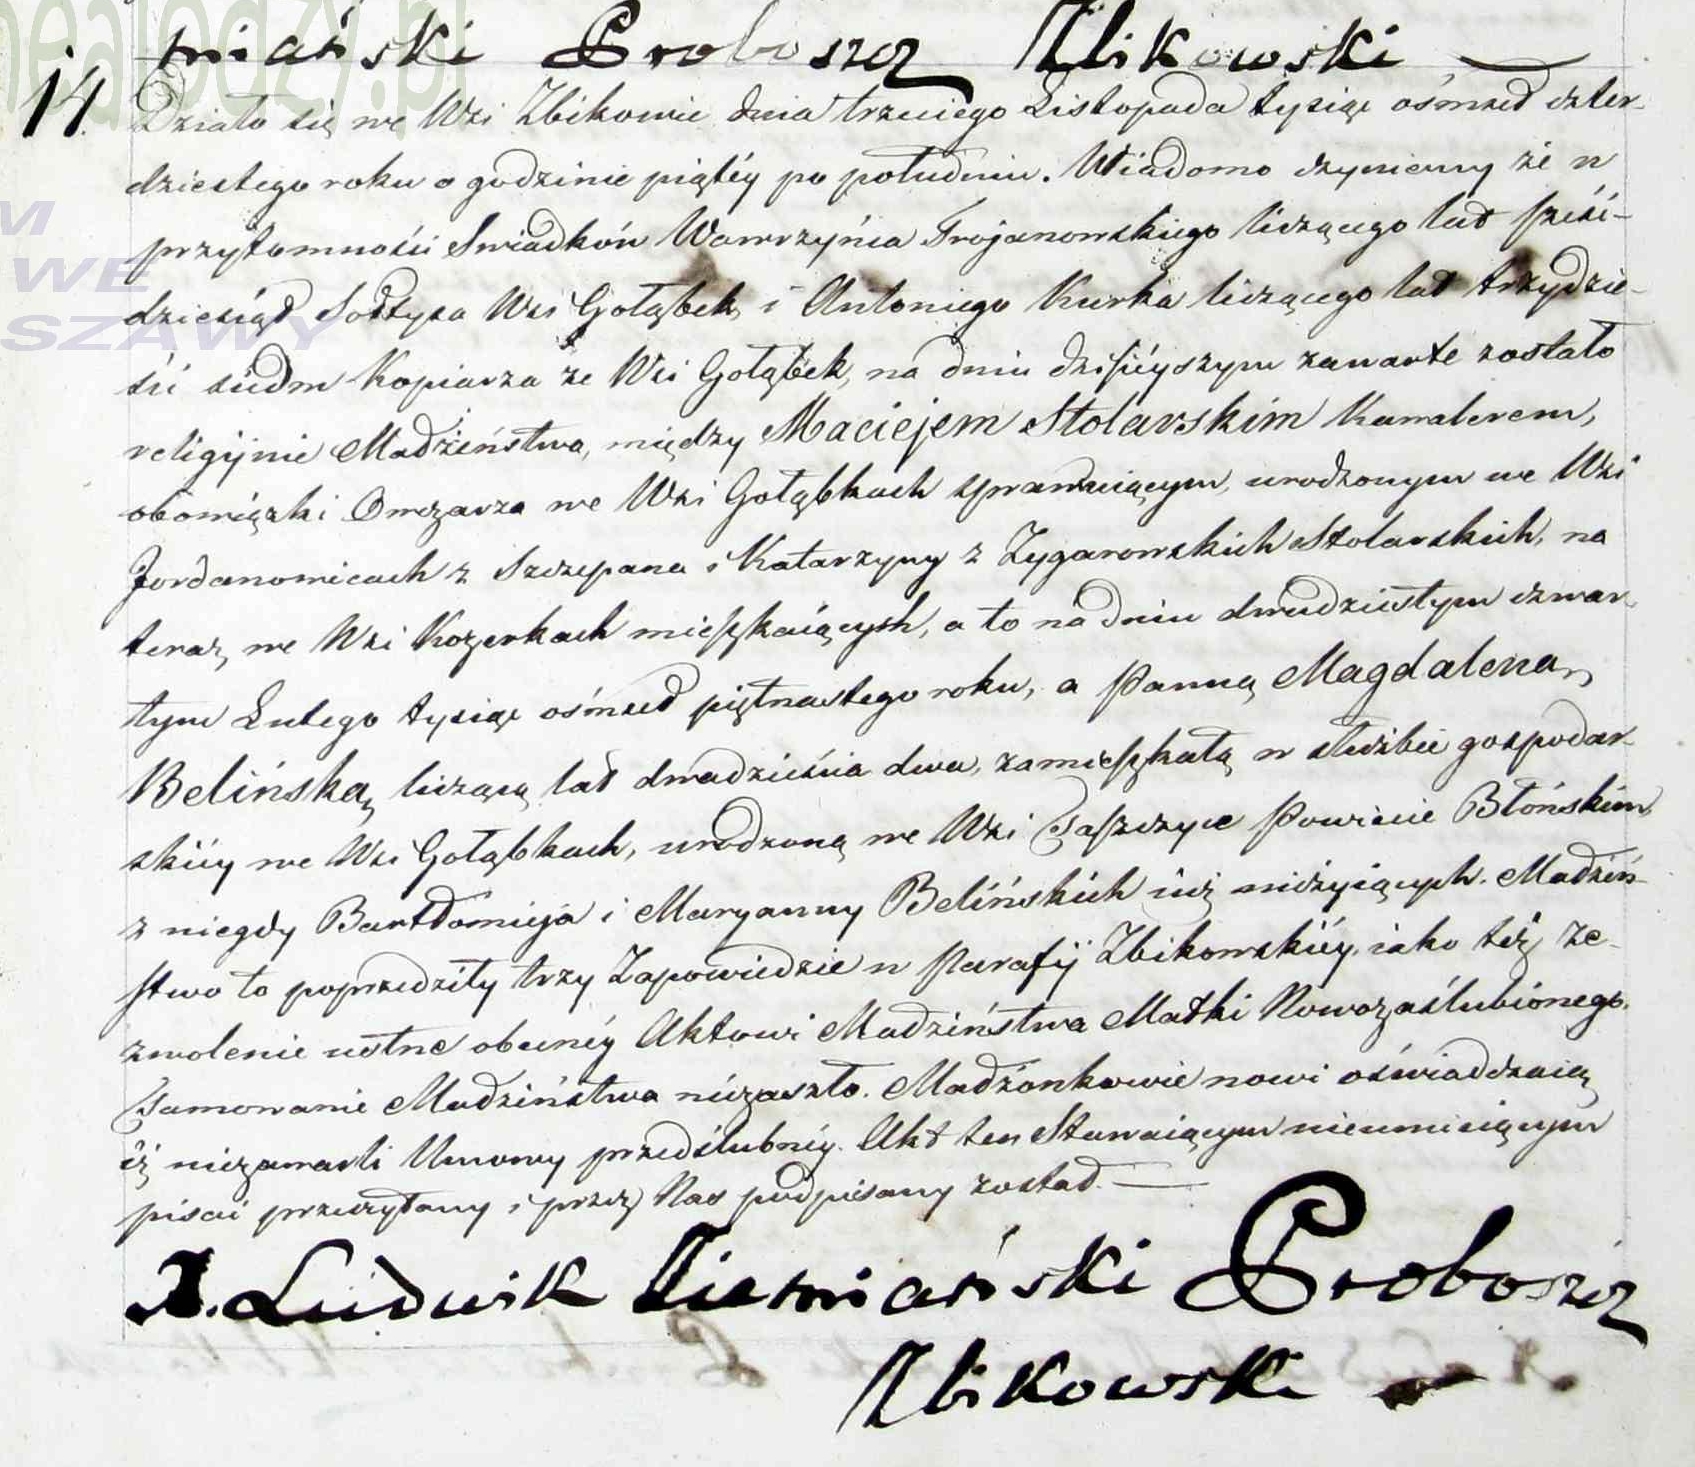 miański Proboszcz Zbikowski
14. Działo się we Wsi Zbikowie dnia trzeciego Listopada tysiąc ośmset czter-
dziestego roku o godzinie piątéy po południu. Wiadomo czyniemy że w
przytomności Swiadków Wawrzyńca Trojanowskiego liczącego lat sześć-
dziesiąt Sołtysa Wsi Gołąbek, i Antoniego Kurka liczącego lat trzydzie-
ści siedm Kopiarza ze Wsi Gołąbek, na dniu dzisiéyszym zawarte zostało
religijnie Małżeństwo, między Maciejem Stolarskim Kawalerem,
obowiązki Owczarza we Wsi Gołąbkach sprawuiącym, urodzonym we Wsi
Jordanowicach z Szczepana i Katarzyny z Zygarowskich Stolarskich, na
teraz we Wsi Kozerkach mieszkaiących, a to na dniu dwudziestym czwar-
tym Lutego tysiąc ośmset piętnastego roku, a Panną Magdaleną
Belińską, liczącą lat dwadzieścia dwa, zamieszkałą w służbie gospodar-
skiéy we Wsi Gołąbkach, urodzoną we Wsi Powiecie Błońskim
z niegdy Bartłomieja i Maryanny Belińskich iuż nieżyiących. Małżeń-
stwo to poprzedziły trzy Zapowiedzie w Parafij Zbikowskiéy, iako téż ze-
zwolenie ustne obecnéy Aktowi Małżeństwa Matki Nowozaślubionego.
Tamowanie Małżeństwa niezaszło. Małżonkowie nowi oświadczaią
iż niezawarli Umowy przedślubnéy. Akt ten Stawaiącym nieumieiącym
pisać przeczytany i przez Nas podpisany został. —
X. Ludwik Ziemiański Proboszcz
Zbikowski
M
WE
SZAWY
nealodzy.pl